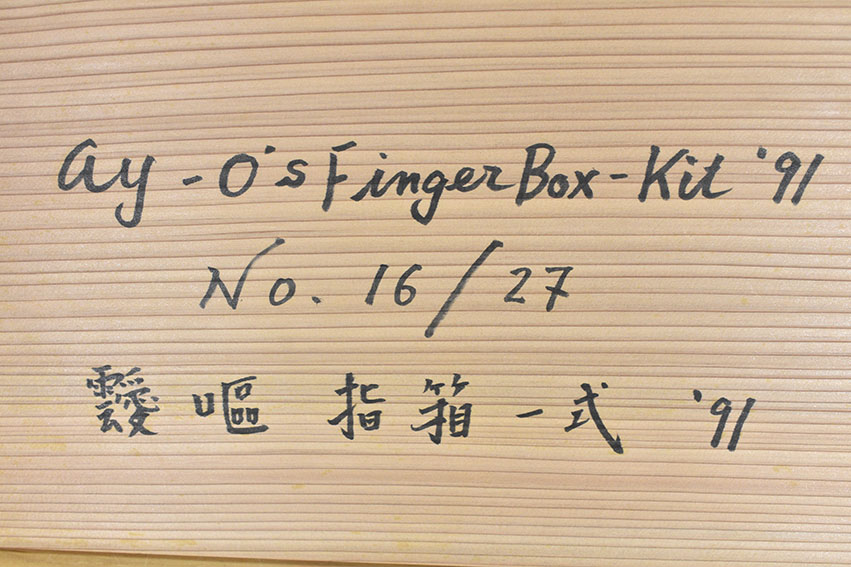 ay-O's Finger Box-Kit '91
No. 16/27
靉嘔 指箱一式 '91